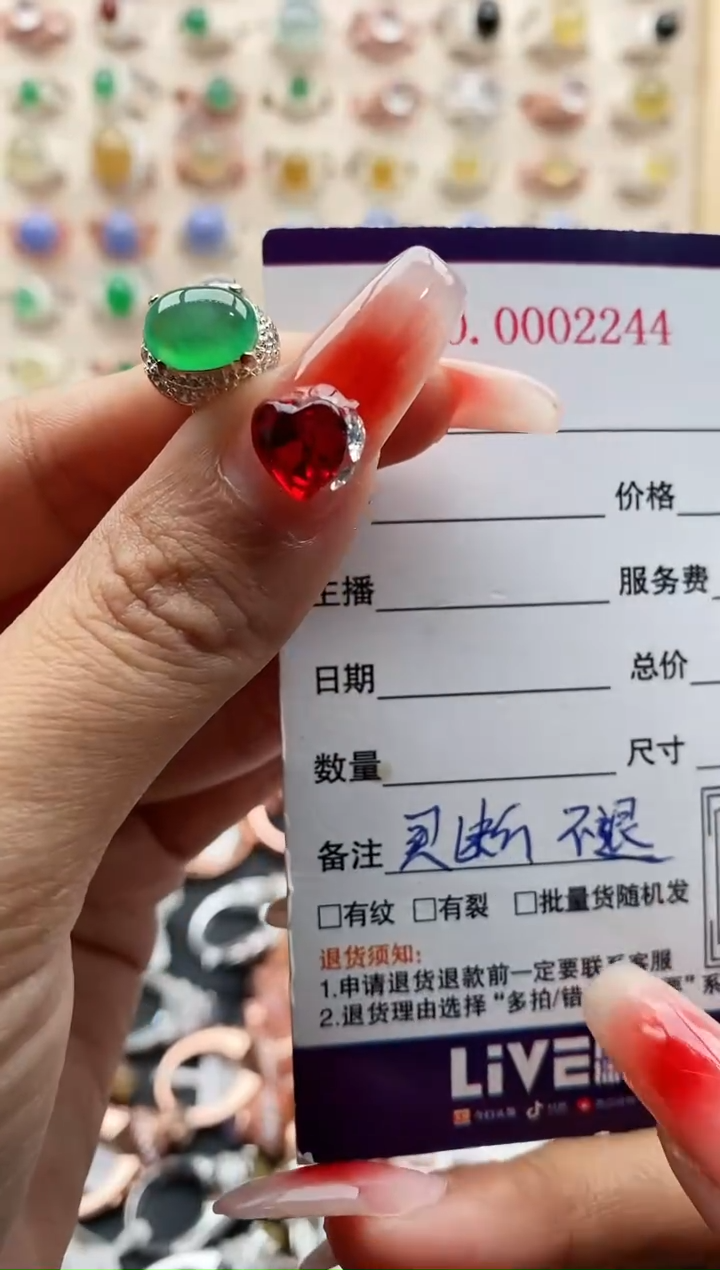 0. 0002244
价格
主播 服务费
日期 总价
数量 尺寸
备注 买断 不退
□有纹 □有裂 □批量货随机发
退货须知:
1.申请退货退款前一定要联系客服
2.退货理由选择“多拍/错 ”系
LiVE